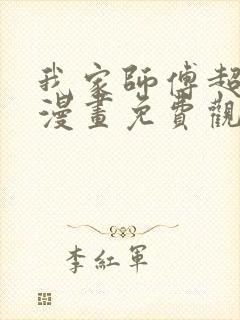 我家師傅超
漫畫免費觀
李紅軍